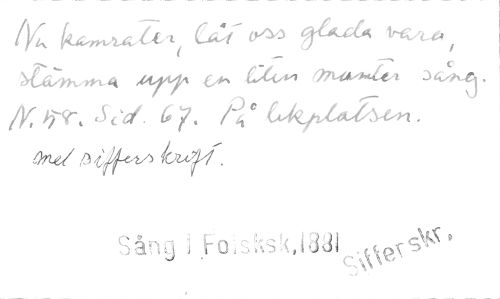 Nu kamrater, låt oss glada vara,
stämma upp en liten munter sång.
N. 58. Sid. 67. På lekplatsen.
med sifferskrift.
Sång i Folksk., 1881
Sifferskr.